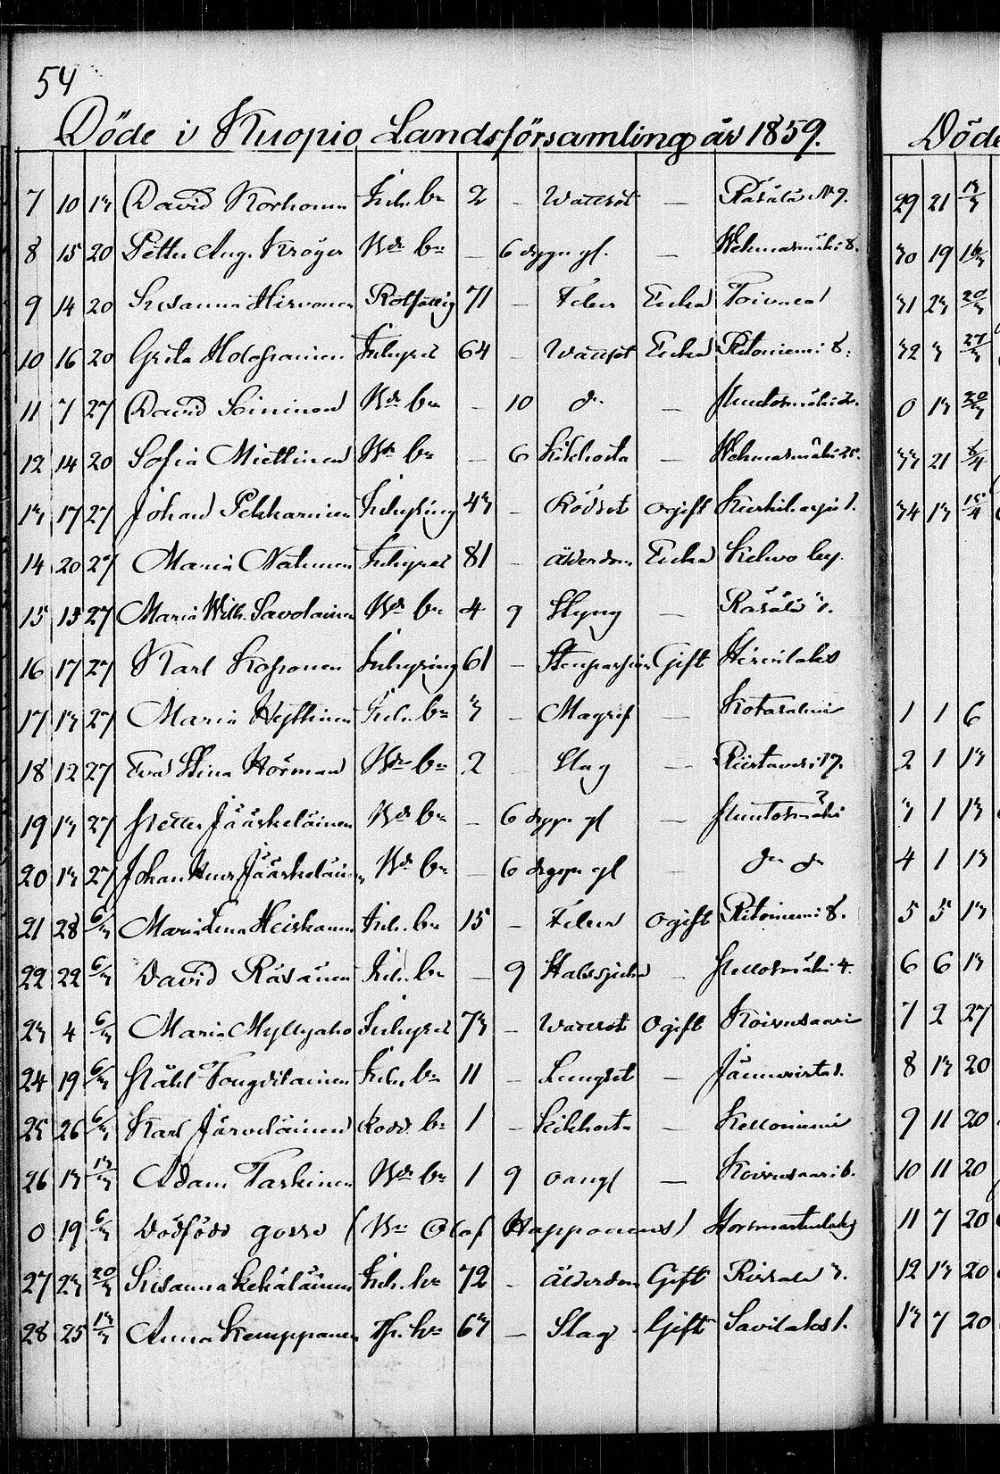 54
Döde i Kuopio Landsförsamling år 1859.
Döde
7 10 13 David Korhonen Inh. bn 2 – Wattsot — Räsälä N 9.
8 15 20 Petter Aug. Kröger Bde bn – 6 dygn gl. — Wehmasmäki 8.
9 14 20 Susanna Hirvonen Rotfattig 71 – Feber Enka Toivala 1
10 16 20 Greta Holopainen Inhyses 64 – Wattsot Enka Ritoniemi 8.
11 7 27 David Soininen Bde bn – 10 do — Muutosmäki 2.
12 14 20 Sofia Miettinen Bde bn – 6 Kikhosta Wehmasmäki 25.
13 17 27 Johan Pekkarinen Inhysing 43 – Rödsot ogift Kurkiharju 1.
14 20 27 Maria Natunen Inhyses 81 – Ålderdom Enka Kehvo by.
15 15 27 Maria Wilh. Savolainen Bde bn 4 9 Slyng — Räsälä 3.
16 17 27 Karl Kosonen Inhysing 61 – Gift Hirvilaks
17 13 27 Maria Hyttinen Inh. bn 3 – Magref — Kotasalmi
18 12 27 Eva Stina Hörman Bde bn 2 – Slag — Riistavesi 17.
19 13 27 Petter Jääskeläinen Bde bn – 6 dygn gl — Muutosmäki
20 13 27 Johan Henr Jääskeläinen Bde bn – 6 dygn gl do do
21 28 6/3 Maria Lena Heiskanen Inh. bn 15 – Feber ogift Ritoniemi 8.
22 22 6/3 David Räsänen Inh. bn – 9 Halssjuka – 4.
23 4 6/3 Maria Myllyaho Inhyses 73 – Wattsot Ogift Koivusaari
24 19 6/3 Inh. bn 11 – Lungsot — Jännevirta 1.
25 26 6/3 Karl Järveläinen bn 1 – Kikhosta – Kelloniemi
26 13 13/3 Adam Taskinen Bde bn 1 9 oangf — Koivusaari 6.
0 19 6/3 Dödfödd gosse (Bn Olof Happonens)
27 23 20/3 Susanna Inh. hu 72 – Ålderdom Gift Rissala 3.
28 25 13/3 Anna Kemppanen hu 63 – Slag Gift Savilaks 1.
29 21 13/3
30 19 16/3
31 23 20/3
32 3 27/3
0 13 20/3
33 21 6/4
34 13 15/4
1 1 6
2 1 13
3 1 13
4 1 13
5 5 13
6 6 13
7 2 27
8 13 20
9 11 20
10 11 20
11 7 20
12 13 20
13 7 20